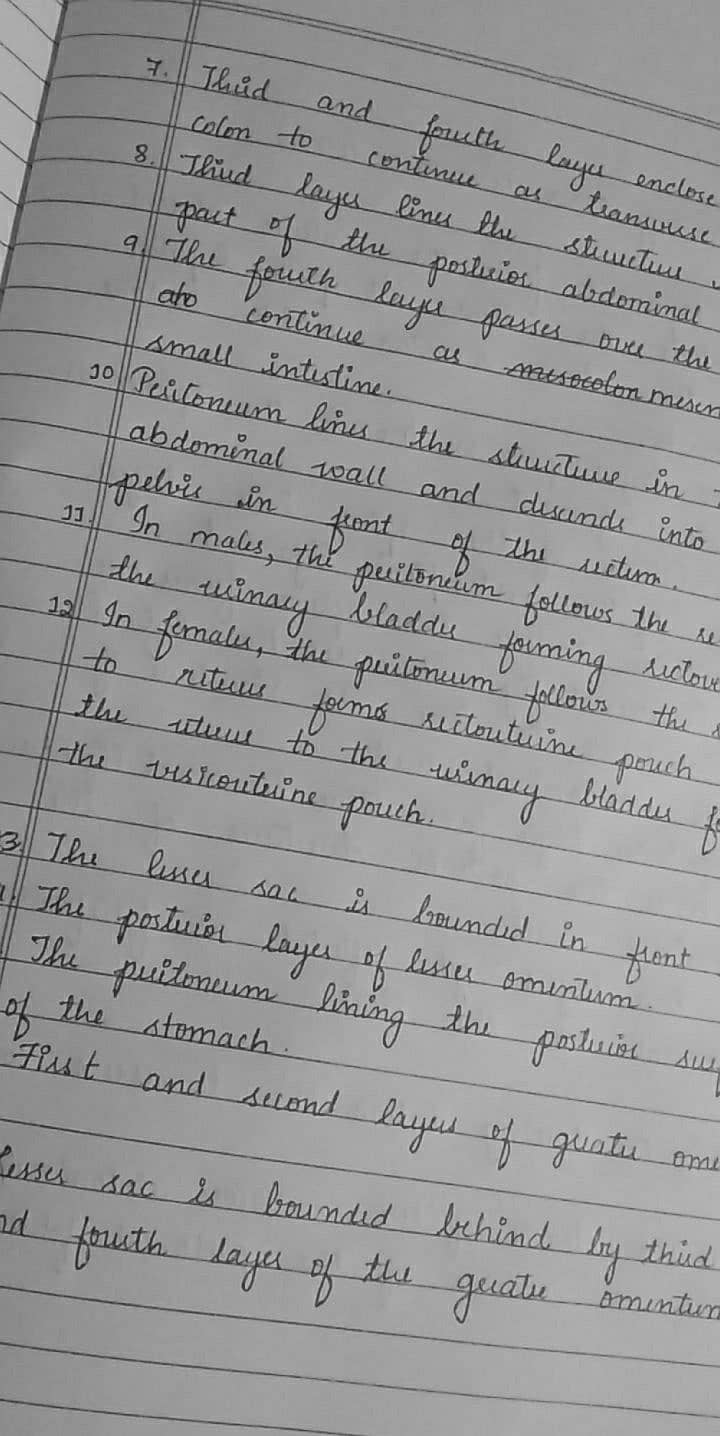 7. Third and fourth layer enclose
colon to continue as transverse
8. Third layer lines the structure
part of the posterior abdominal
9. The fourth layer passes over the
continue as mesocolon mesen
small intestine.
10 Peritoneum lines the structure in
abdominal wall and descends into
pelvis in front of the rectum.
11. In males, the peritoneum follows the re
the urinary bladder forming rectove
12 In females, the peritoneum follows the
to uterus forms rectouterine pouch
the uterus to the urinary bladder fo
the vesicouterine pouch.
3. The lesser sac is bounded in front
The posterior layer of lesser omentum.
The peritoneum lining the posterior surf
of the stomach.
First and second layers of greater ome
lesser sac is bounded behind by third
nd fourth layer of the greater omentum